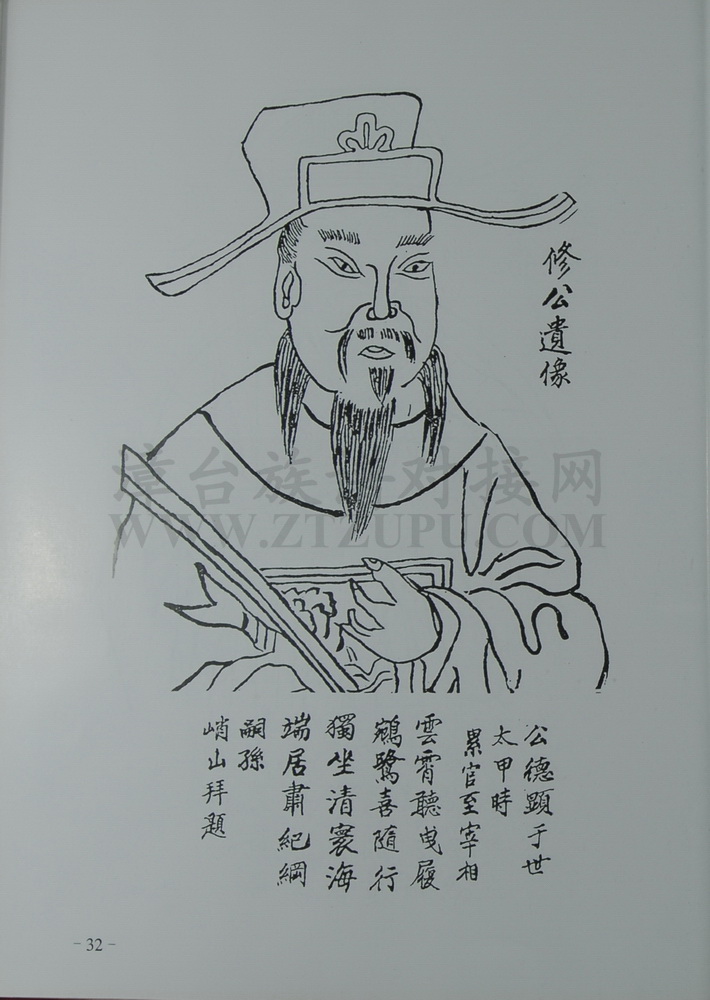 修公遺像
公德顯于世
太甲時
累官至宰相
雲霄聽曳履
鵷鷺喜隨行
獨坐清寰海
端居肅紀綱
嗣孫
峭山拜題
台族 对接网
WWW.ZTZUPU.COM
- 32 -